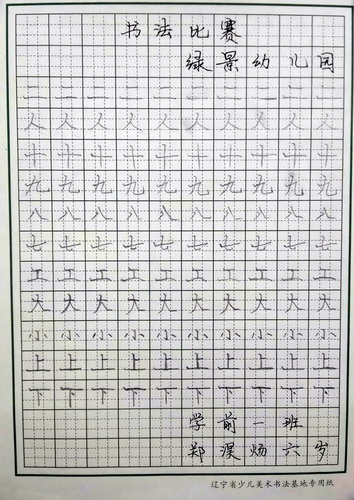 书法比赛
绿景幼儿园
二二二二二二二二二二
人人人人人人人人人人
十十十十十十十十十十
九九九九九九九九九九
八八八八八八八八八八
七七七七七七七七七七
工工工工工工工工工工
大大大大大大大大大大
小小小小小小小小小小
上上上上上上上上上上
下下下下下下下下下下
学前一班
郑淏炀六岁
辽宁省少儿美术书法基地专用纸